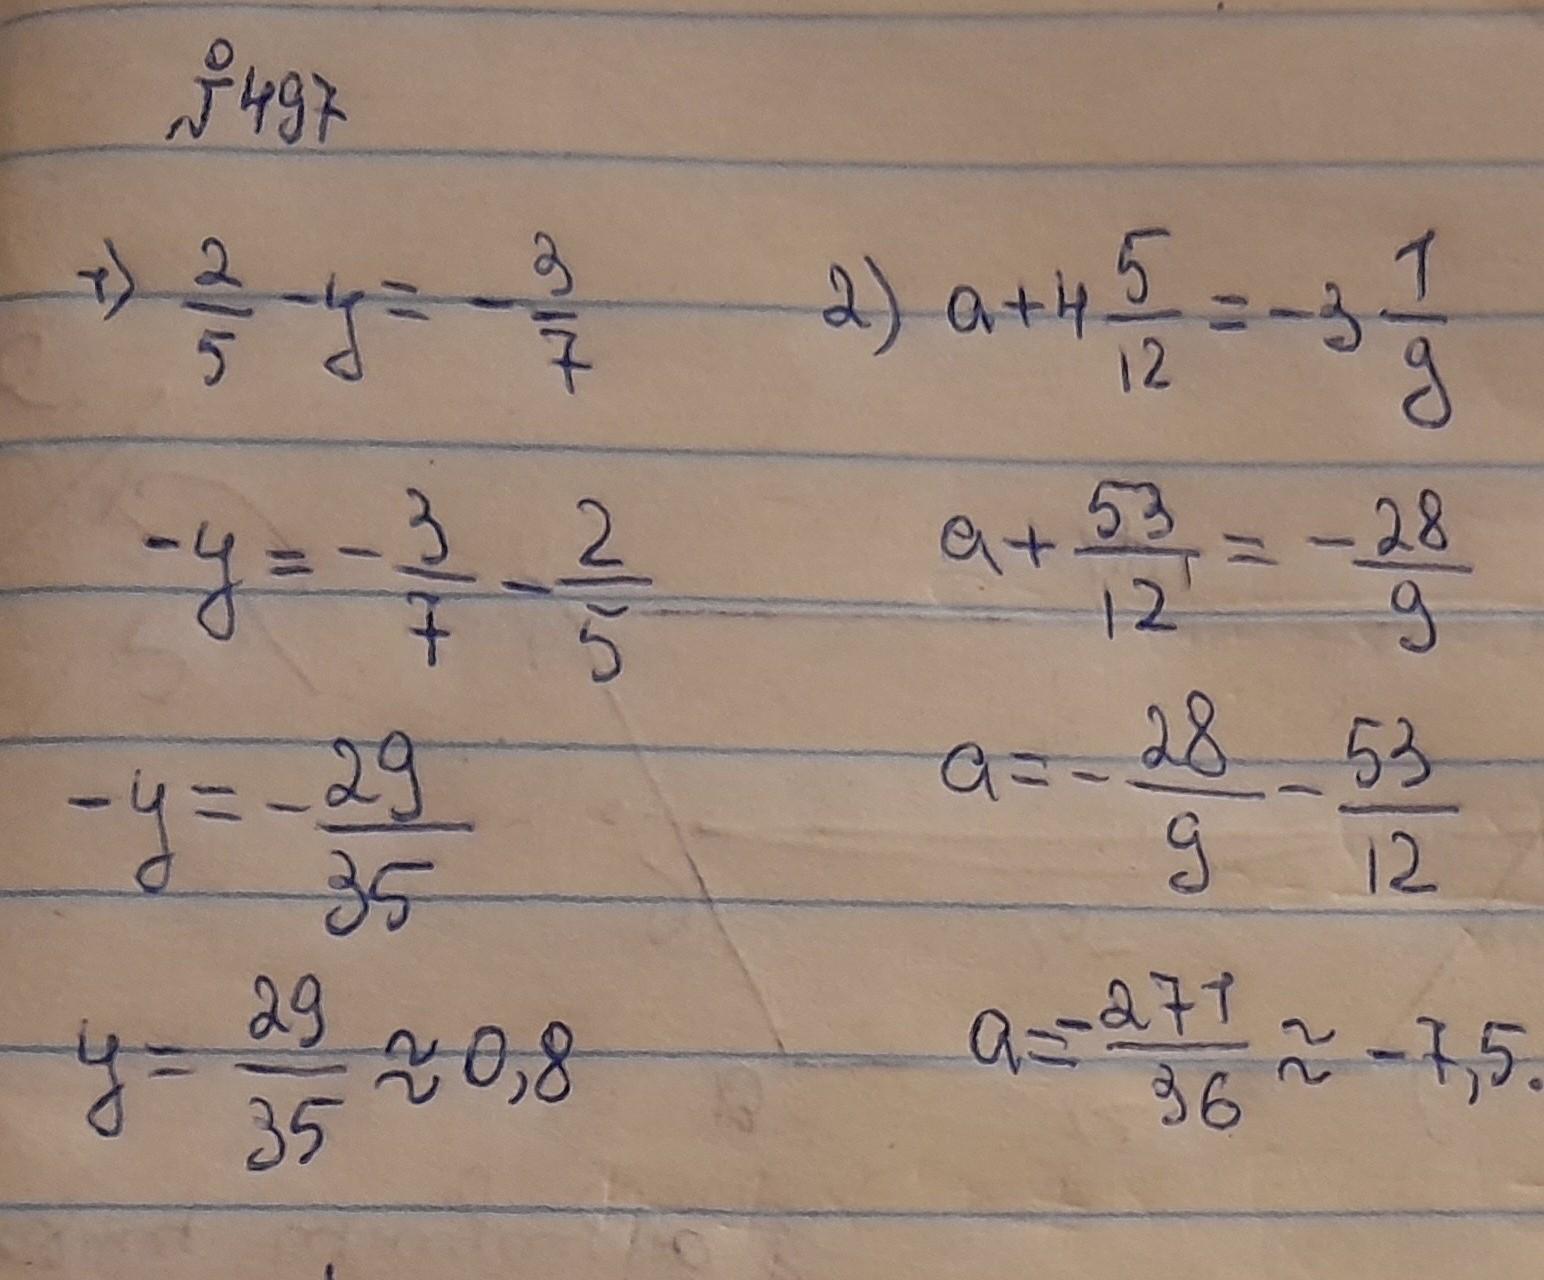 №497
1) 2/5 - y = - 3/7
-y = - 3/7 - 2/5
-y = - 29/35
y = 29/35 ≈ 0,8
2) a + 4 5/12 = -3 1/9
a + 53/12 = - 28/9
a = - 28/9 - 53/12
a = - 271/36 ≈ -7,5.